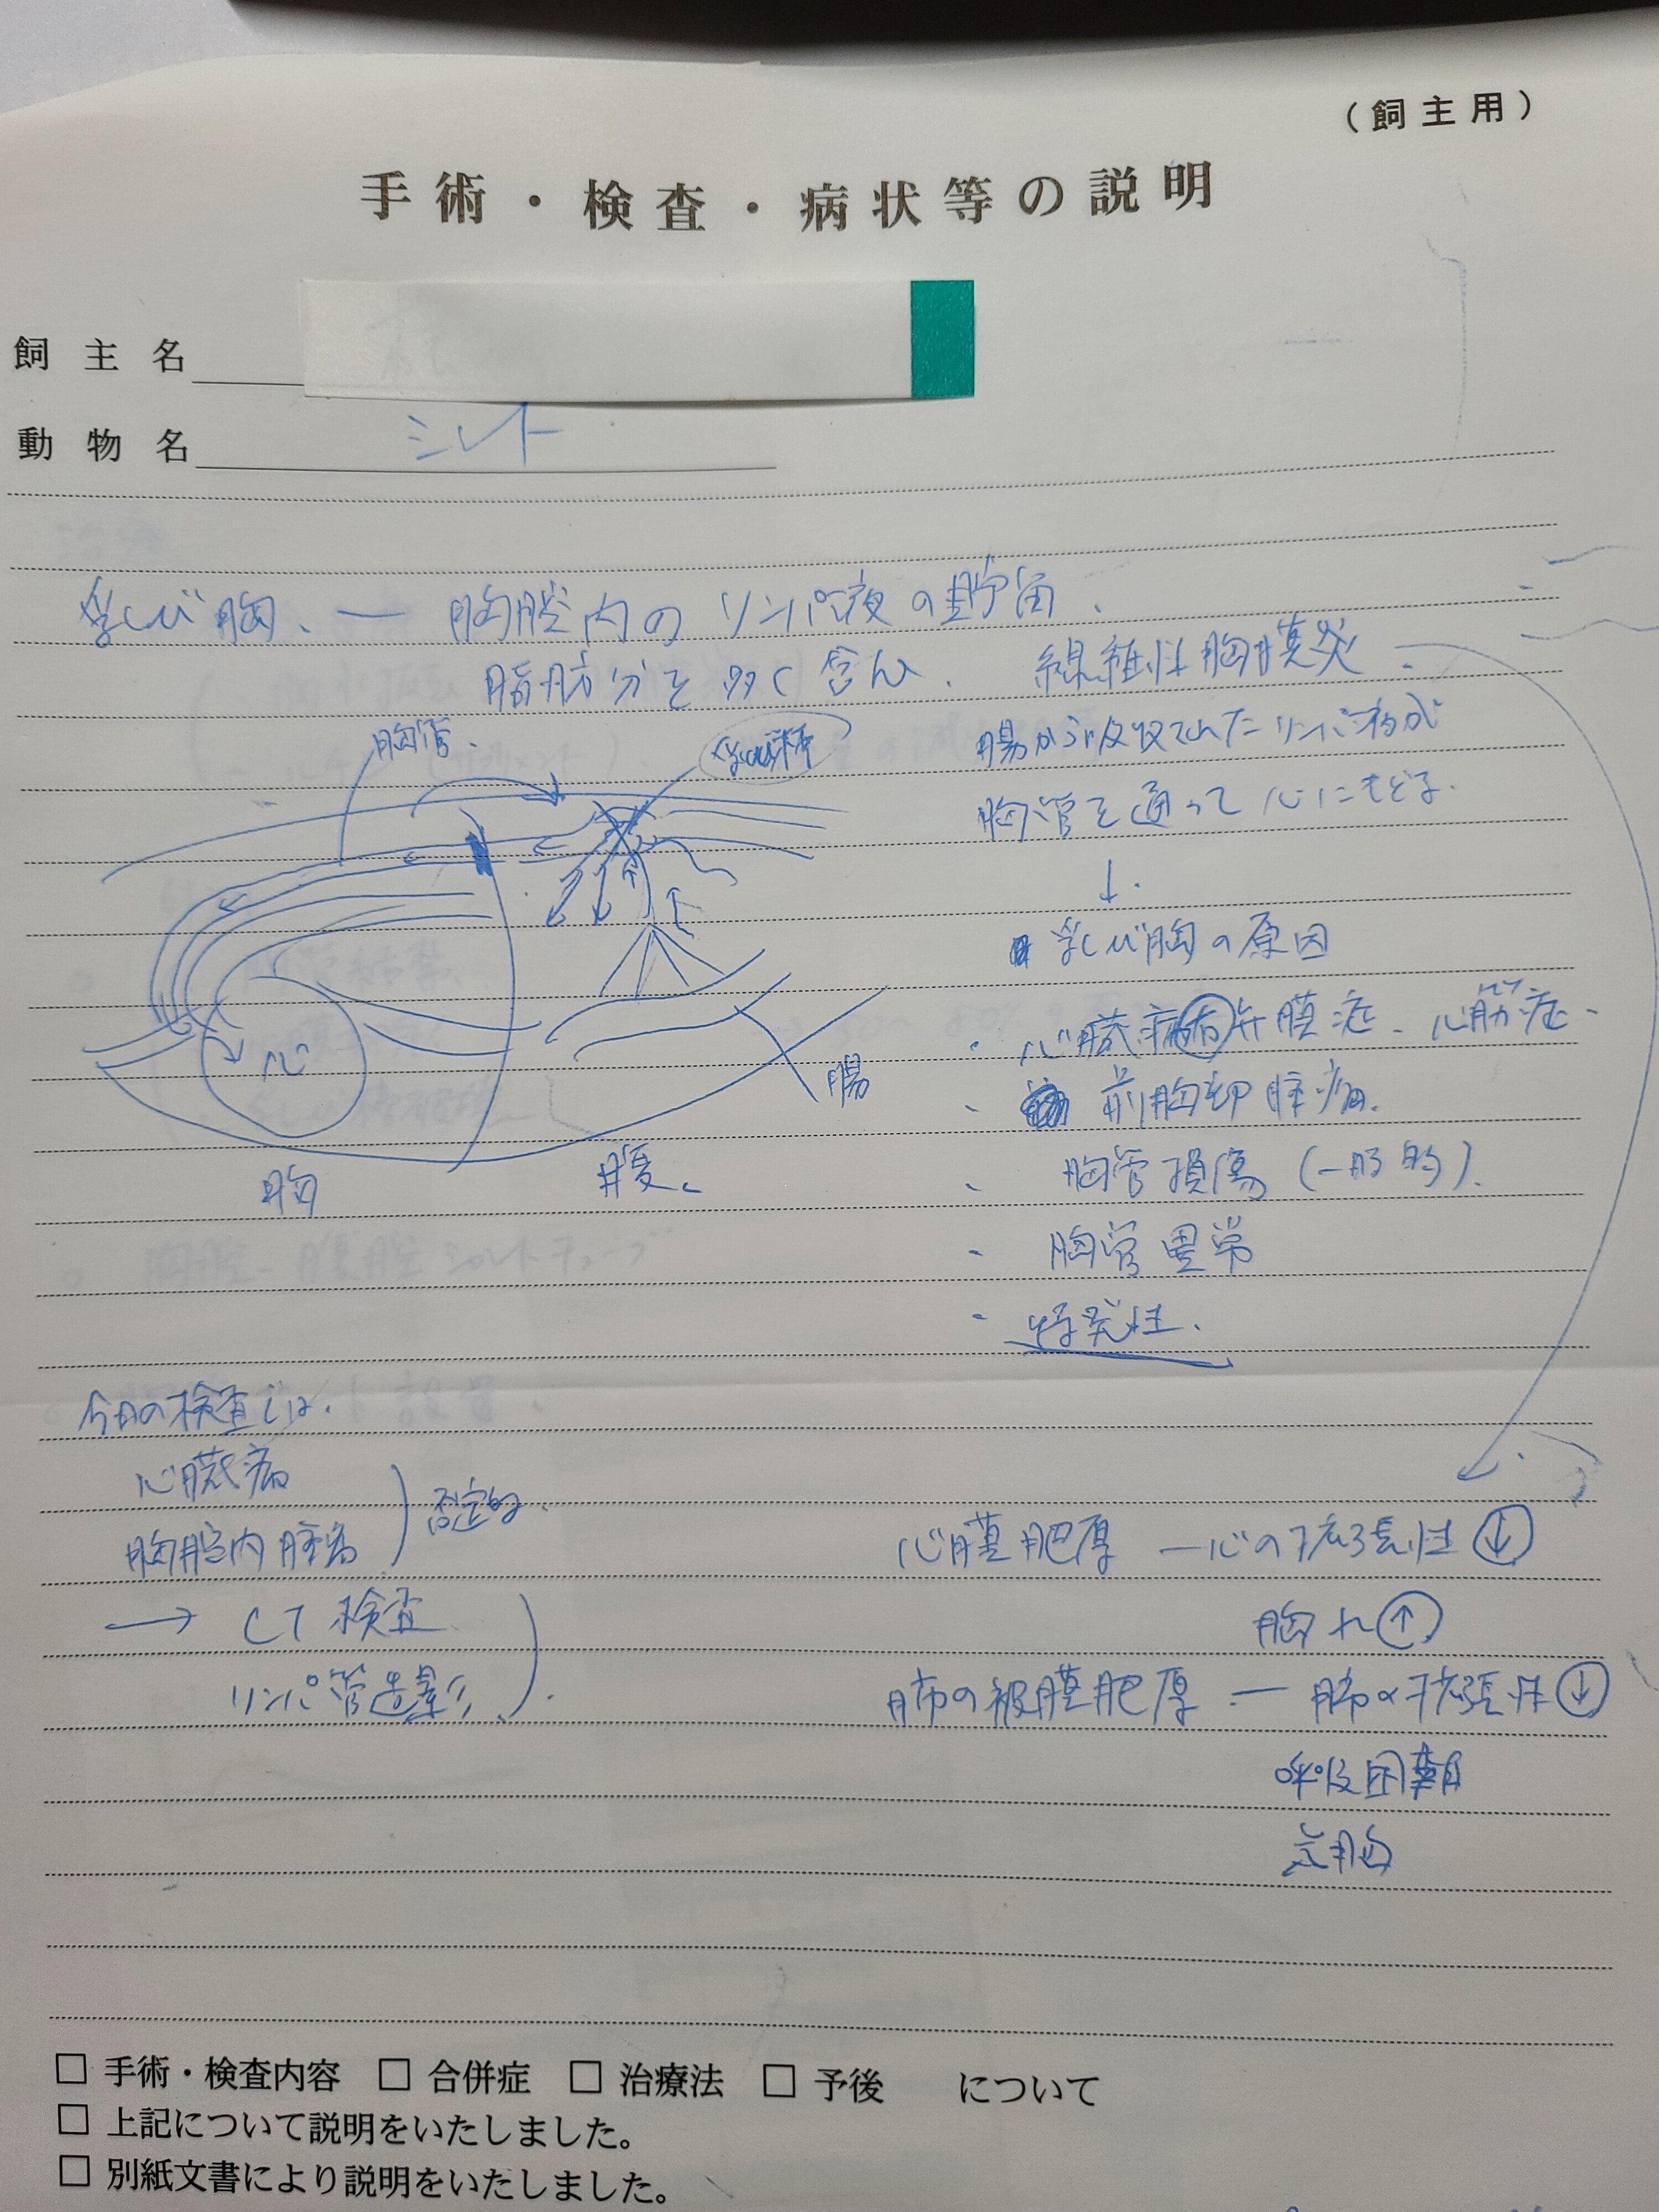 （飼主用）
手術・検査・病状等の説明
飼主名
動物名 ミレト
乳び胸、― 胸腔内のリンパ液の貯留.
脂肪分を多く含ん. 線維性胸膜炎
胸管. 乳び槽
腸から吸収されたリンパ
胸管を通って心にもどる.
↓
乳び胸の原因
・心臓病 弁膜症、心筋症
・前胸部腫瘤.
・胸管損傷（一般的）.
・胸管異常
・特発性.
心
腸
胸
腹
今日の検査では.
心臓病
胸腔内腫瘤
否定的.
→ CT検査
リンパ管造影
心膜肥厚 ― 心の拡張性 ↓
胸水 ↑
肺の被膜肥厚 ― 肺の拡張性 ↓
呼吸困難
気胸
□ 手術・検査内容 □ 合併症 □ 治療法 □ 予後 について
□ 上記について説明をいたしました。
□ 別紙文書により説明をいたしました。